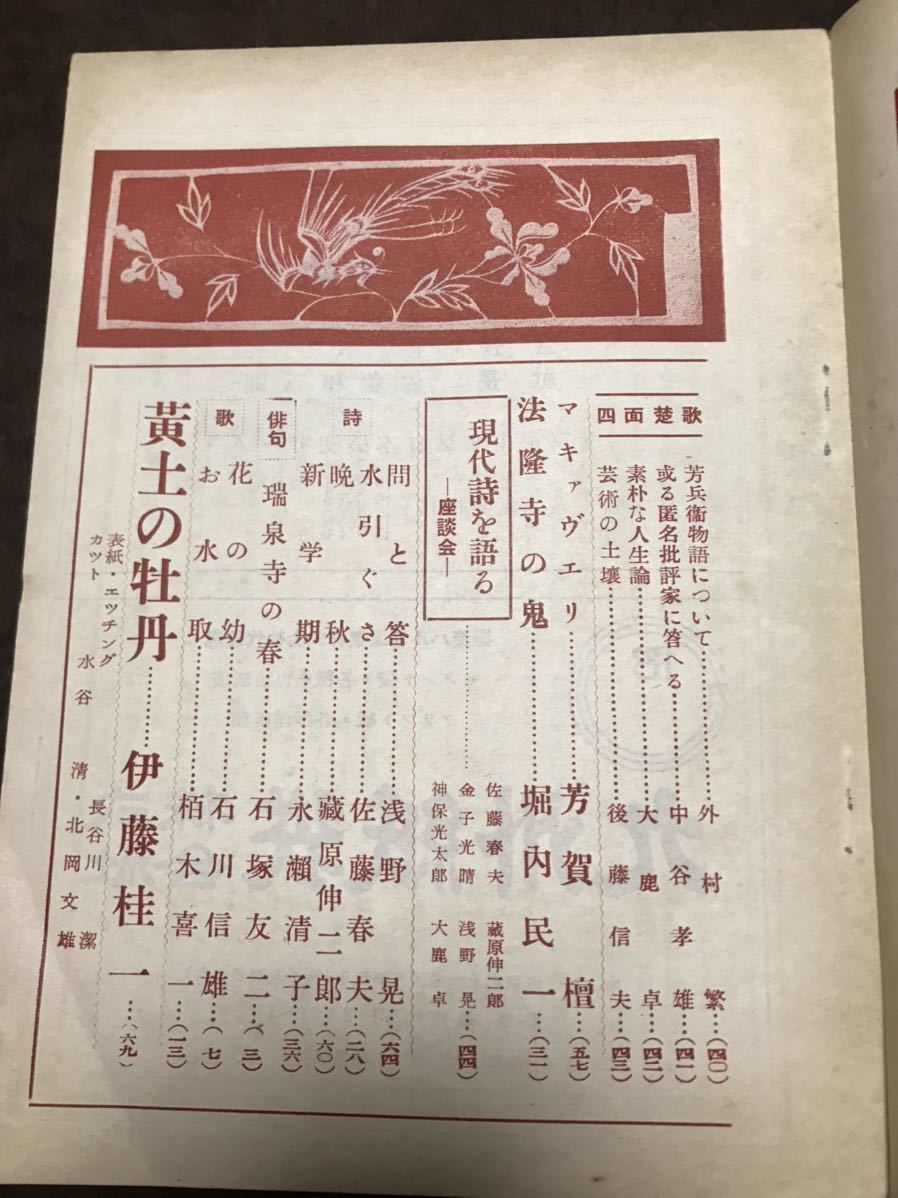 四面楚歌
芳兵衞物語について……外村繁…(四〇)
或る匿名批評家に答へる……中谷孝雄…(四一)
素朴な人生論……大鹿卓…(四二)
芸術の土壤……後藤信夫…(四三)
マキァヴェリ……芳賀檀…(五七)
法隆寺の鬼……堀内民一…(三一)
現代詩を語る
―座談会―
佐藤春夫 蔵原伸二郎
金子光晴 浅野晃…(四四)
神保光太郎 大鹿卓
詩
問と答……浅野晃…(六四)
水引ぐさ……佐藤春夫…(二八)
晩秋……蔵原伸二郎…(六〇)
新学期……永瀬清子…(三六)
俳句
瑞泉寺の春……石塚友二…(三)
歌
花の幼……石川信雄…(七)
お水取……栢木喜一…(一三)
黃土の牡丹……伊藤桂一…(六九)
表紙・エツチング 長谷川潔
カツト 水谷清・北岡文雄